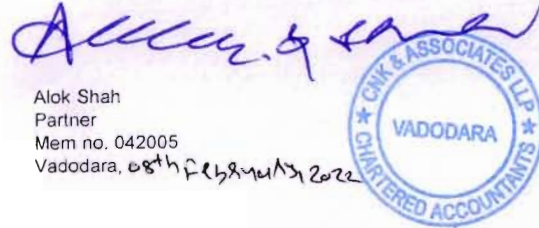 Alok Shah
Partner
Mem no. 042005
Vadodara, 08th February, 2022
CNK & ASSOCIATES LLP
VADODARA
CHARTERED ACCOUNTANTS